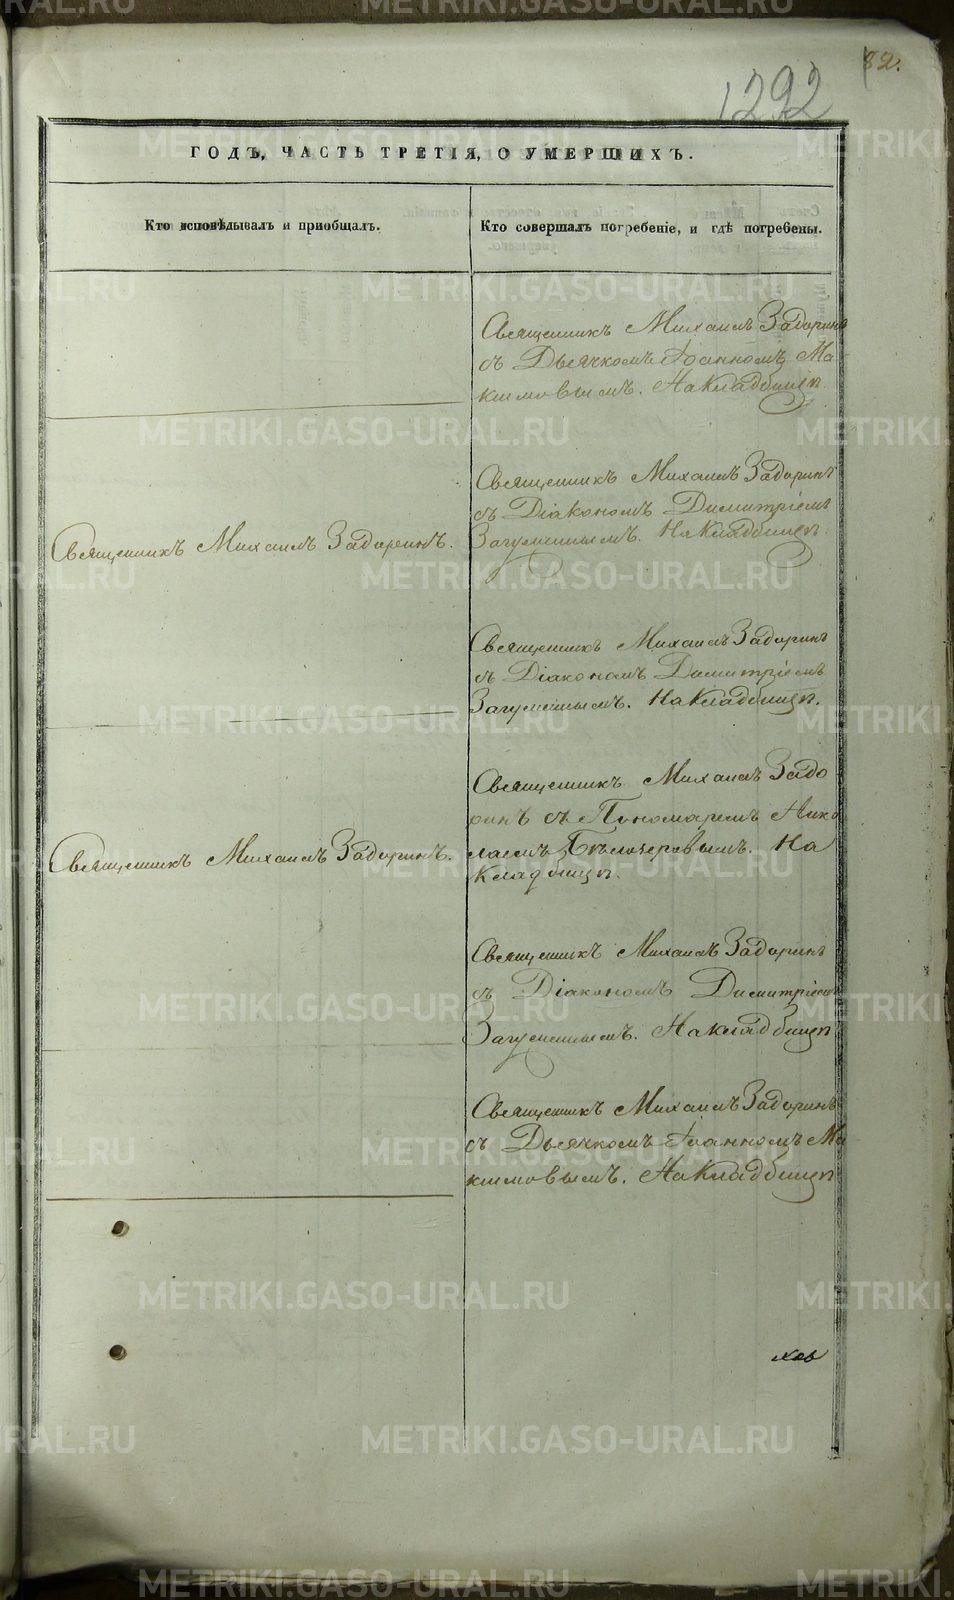 82.
1292
ГОДЪ, ЧАСТЬ ТРЕТІЯ, О УМЕРШИХЪ.
Кто исповѣдывалъ и пріобщалъ.
Кто совершалъ погребеніе, и гдѣ погребены.
Священникъ Михаилъ Задоринъ
съ Дьячкомъ Іоанномъ Ма-
ксимовымъ. На кладбищѣ.
Священникъ Михаилъ Задоринъ.
Священникъ Михаилъ Задоринъ
съ Діакономъ Димитріемъ
Загуменнымъ. На кладбищѣ.
Священникъ Михаилъ Задоринъ
съ Діакономъ Димитріемъ
Загуменнымъ. На кладбищѣ.
Священникъ Михаилъ Задоринъ.
Священникъ Михаилъ Задо
ринъ съ Пономаремъ Нико
лаемъ Бѣлозеровымъ. На
кладбищѣ.
Священникъ Михаилъ Задоринъ
съ Діакономъ Димитріемъ
Загуменнымъ. На кладбищѣ
Священникъ Михаилъ Задоринъ
съ Дьячкомъ Іоанномъ Ма
ксимовымъ. На кладбищѣ
METRIKI.GASO-URAL.RU